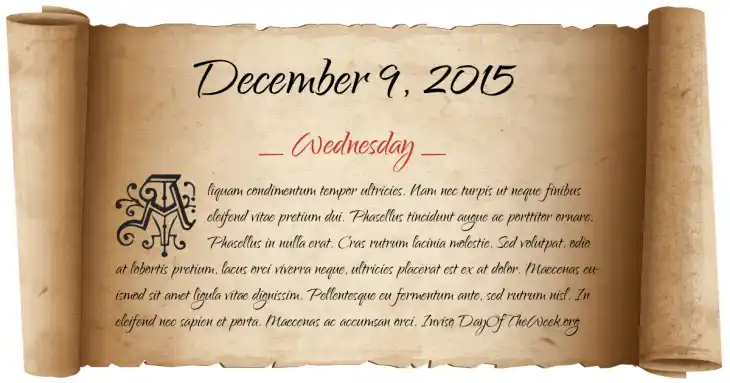 December 9, 2015
_ Wednesday _
Aliquam condimentum tempor ultricies. Nam nec turpis ut neque finibus
eleifend vitae pretium dui. Phasellus tincidunt augue ac porttitor ornare.
Phasellus in nulla erat. Cras rutrum lacinia molestie. Sed volutpat, odio
at lobortis pretium, lacus orci viverra neque, ultricies placerat est ex at dolor. Maecenas eu-
ismod sit amet ligula vitae dignissim. Pellentesque eu fermentum ante, sed rutrum nisl. In
eleifend nec sapien et porta. Maecenas ac accumsan orci. Inviso DayOfTheWeek.org